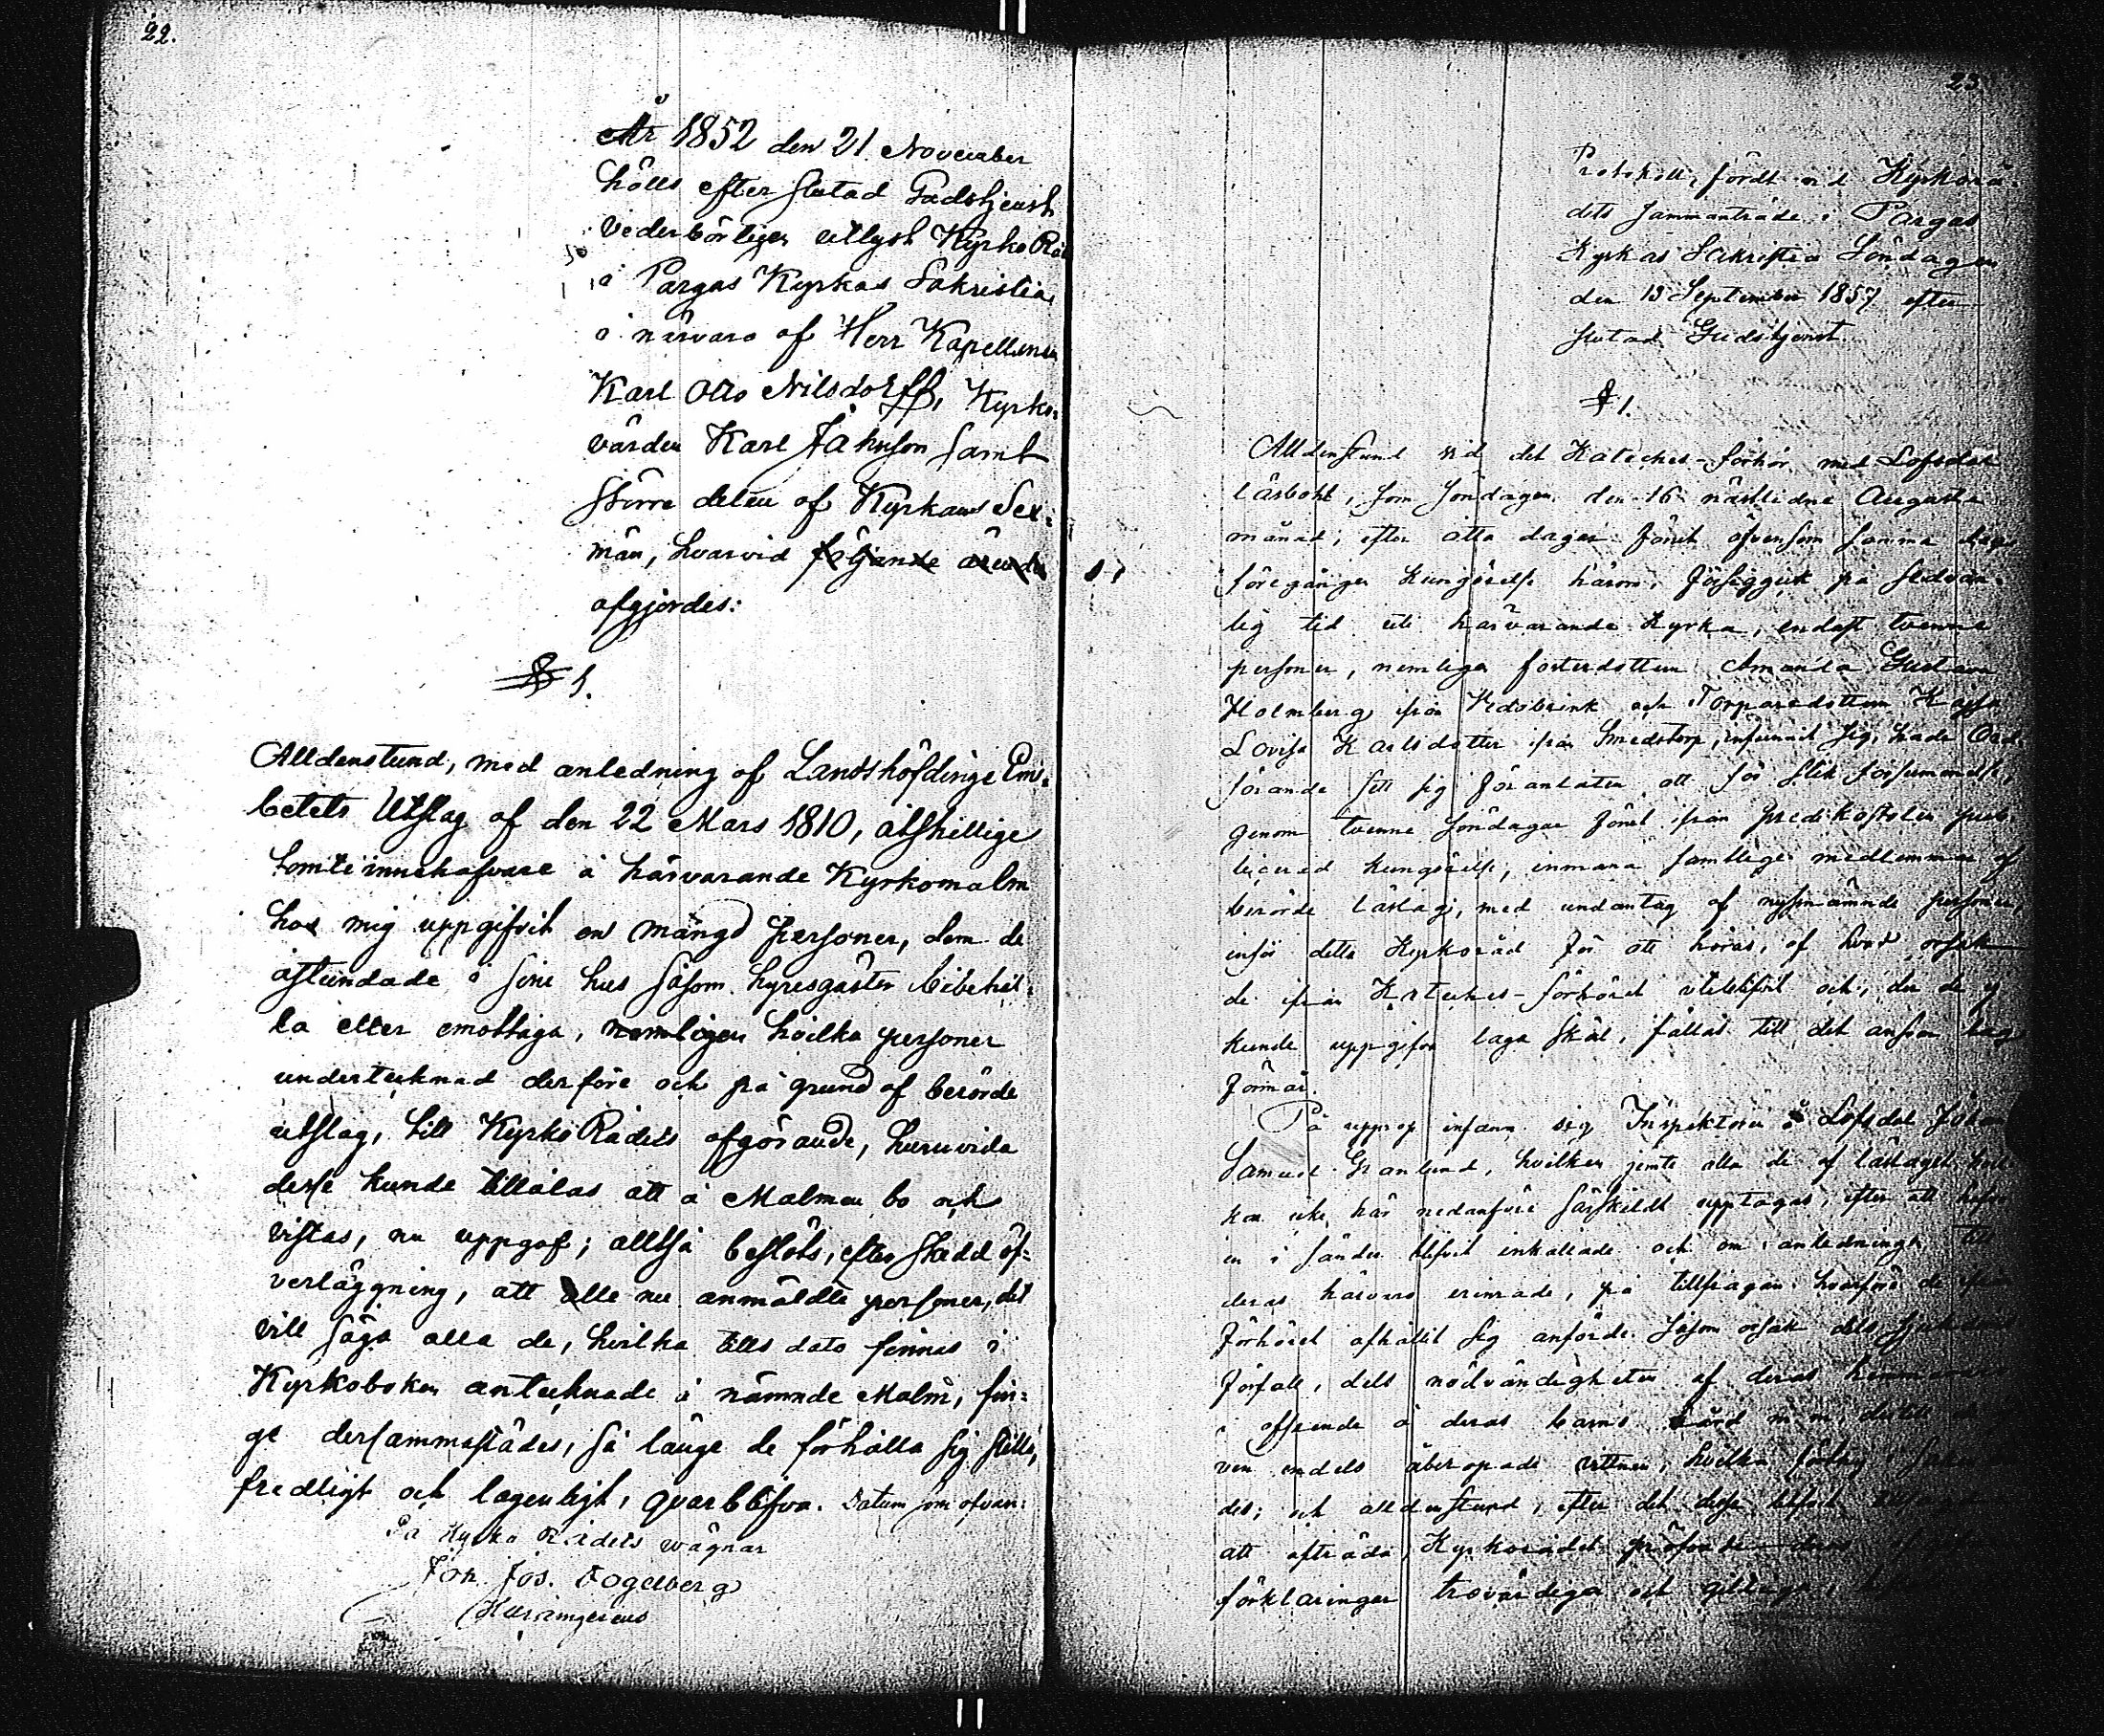 22.
År 1852 den 21 November
hölls efter slutad Gudstjenst
vederbörligen utlyst Kyrko Råd
i Pargas Kyrkas Sakristia,
i närvaro af Herr Kapellanen
Karl Otto Nilsdorff, Kyrko-
värden Karl Jahnson samt
större delen af Kyrkans Sex-
män, hvarvid följande ärenden
afgjordes:
§ 1.
Alldenstund, med anledning af Landshöfdinge Em-
betets Utslag af den 22 Mars 1810, åtskillige
tomteinnehafvare å härvarande Kyrkomalm
hos mig uppgifvit en mängd personer, dem de
åstundade i sine hus såsom hyresgäster bibehål-
la eller emottaga, nemligen hvilka personer
undertecknad derföre och på grund af berörde
utslag, till Kyrko Rådets afgörande, huruvida
desse kunde tillåtas att å Malmen bo och
vistas, nu uppgaf; alltså beslöts, efter skedd öf-
verläggning, att alle nu anmäldte personer, det
vill säga alla de, hvilka tills dato finnas i
Kyrkoboken antecknade å nämnde Malm, fin-
ge dersammastädes, så länge de förhålla sig stilla,
fredligt och lagenligt, qvarblifva. Datum som ofvan:
På Kyrko Rådets wägnar
Joh. Jos. Fogelberg
23
Protokoll, fördt vid Kyrkorå-
dets sammanträde i Pargas
Kyrkas Sakristia Söndagen
den 13 September 1857 efter
slutad Gudstjenst.
§ 1.
Alldenstund vid det Kateches-förhör med Lofsdal
läsrotе, som Söndagen den 16 nästlidne Augusti
månad, efter åtta dagar förut äfvensom samma dag
föregången kungörelse härom, försiggick på sedvan-
lig tid uti härvarande Kyrka, endast tvenne
personer, nemligen fosterdottren Amanda Gustava
Holmberg ifrån Vedobrink och Torparedottren Kajsa
Lovisa Karlsdotter ifrån Smedstorp, infunnit sig, hade Ord-
förande sett sig föranlåten att för slik försummelse,
genom tvenne Söndagar förut ifrån predikostolen pub-
licerad kungörelse, inmana samtlige medlemmar af
berörde läslag, med undantag af nyssnämnde personer,
inför detta Kyrkoråd för att höras, af hvad orsak
de ifrån Kateches-förhöret uteblifvit och, der de ej
kunde uppgifva laga skäl, fällas till det ansvar lag
förmår.
På upprop infann sig Inspektoren å Lofsdal Johan
Samuel Granlund, hvilken jemte alla de af läslaget
icke här nedanföre särskildt upptagas, efter att hafva
en i sänder blifvit inkallade och om anledningen till
deras härvaro erinrade, på tillfrågan hvarföre de ifrån
förhöret afhållit sig anförde såsom orsak dels sjukdoms
förfall, dels nödvändigheten af deras hemmavaro
i afseende å deras barns vård m.m. dertill
endels åberopade vittnen, hvilka
det; och alldenstund, efter det desse blifvit
att afträda, Kyrkorådet pröfvade deras
förklaringar trovärdiga och giltiga,